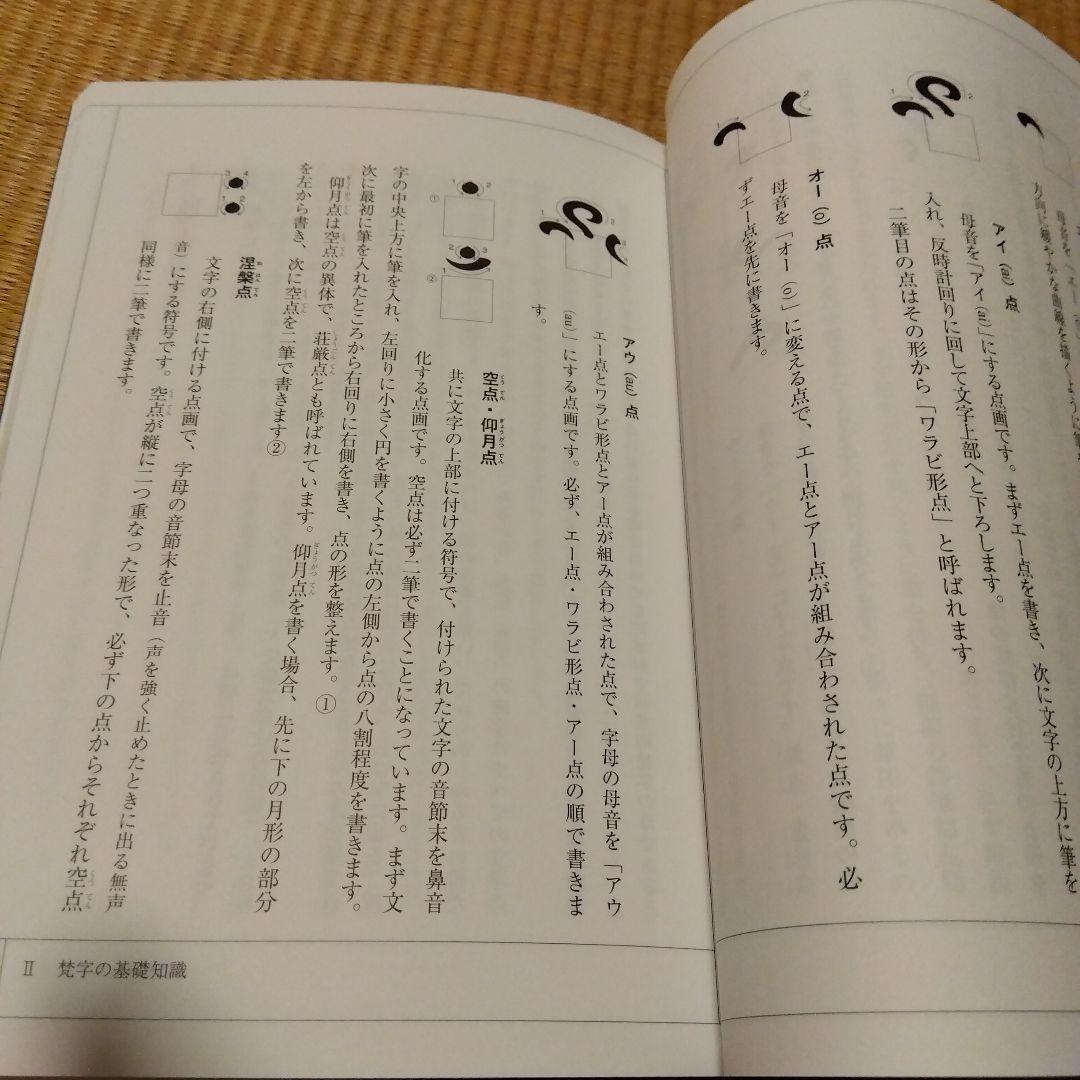 アイ（ai）点
母音を「アイ（ai）」にする点画です。まずエー点を書き、次に文字の上方に筆を
入れ、反時計回りに回して文字上部へと下ろします。
二筆目の点はその形から「ワラビ形点」と呼ばれます。
1
2
オー（o）点
母音を「オー（o）」に変える点で、エー点とアー点が組み合わされた点です。必
ずエー点を先に書きます。
1
2
アウ（au）点
エー点とワラビ形点とアー点が組み合わされた点で、字母の母音を「アウ
（au）」にする点画です。必ず、エー点・ワラビ形点・アー点の順で書きま
す。
1
2
3
空点・仰月点
共に文字の上部に付ける符号で、付けられた文字の音節末を鼻音
化する点画です。空点は必ず二筆で書くことになっています。まず文
字の中央上方に筆を入れ、左回りに小さく円を書くように点の左側から点の八割程度を書きます。
次に最初に筆を入れたところから右回りに右側を書き、点の形を整えます。①
仰月点は空点の異体で、荘厳点とも呼ばれています。仰月点を書く場合、先に下の月形の部分
を左から書き、次に空点を二筆で書きます②
①
1
2
②
2
3
涅槃点
文字の右側に付ける点画で、字母の音節末を止音（声を強く止めたときに出る無声
音）にする符号です。空点が縦に二つ重なった形で、必ず下の点からそれぞれ空点
同様に二筆で書きます。
3
4
1
2
Ⅱ 梵字の基礎知識